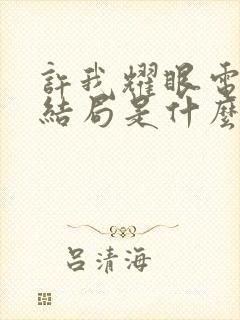 許我耀眼電
結局是什麼
呂清海